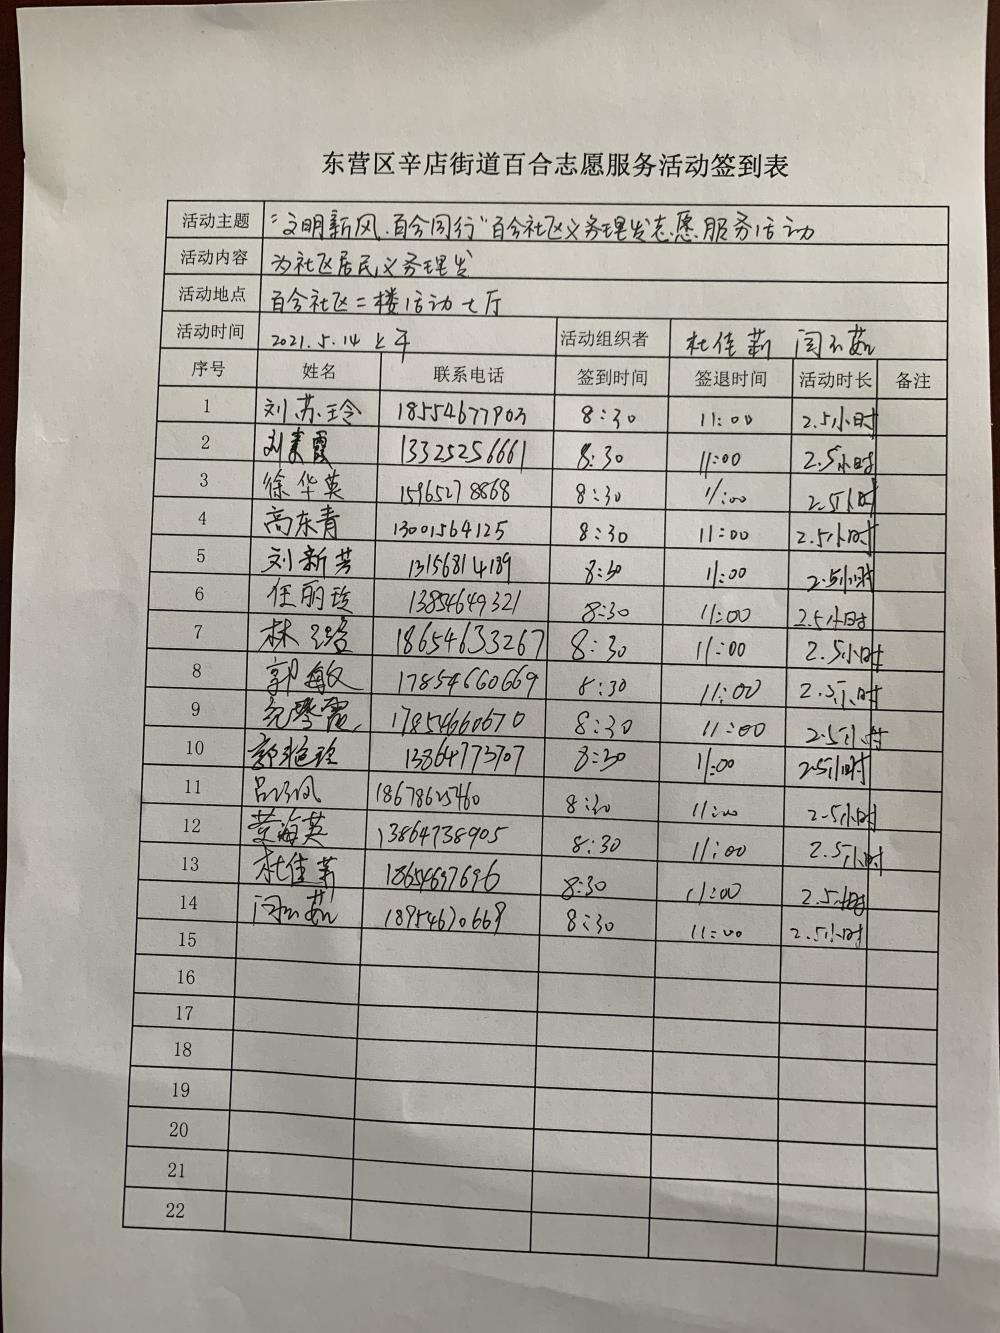 东营区辛店街道百合志愿服务活动签到表
活动主题 “文明新风.百合同行”百合社区义务理发志愿服务活动
活动内容 为社区居民义务理发
活动地点 百合社区二楼活动大厅
活动时间 2021.5.14上午 活动组织者 杜佳莉 闫
序号 姓名 联系电话 签到时间 签退时间 活动时长 备注
1 刘苏玲 18554677903 8:30 11:00 2.5小时
2 刘素霞 13325256661 8:30 11:00 2.5小时
3 徐华英 15965278868 8:30 11:00 2.5小时
4 高东青 13001564125 8:30 11:00 2.5小时
5 刘新芳 13156814189 8:30 11:00 2.5小时
6 任丽玲 13854649321 8:30 11:00 2.5小时
7 林 18654633267 8:30 11:00 2.5小时
8 郭敏 17854660669 8:30 11:00 2.5小时
9 17854660670 8:30 11:00 2.5小时
10 郭艳玲 13864773707 8:30 11:00 2.5小时
11 吕 18678625460 8:30 11:00 2.5小时
12 黄海英 13864738905 8:30 11:00 2.5小时
13 杜佳莉 18654697696 8:30 11:00 2.5小时
14 闫 18954670669 8:30 11:00 2.5小时
15
16
17
18
19
20
21
22